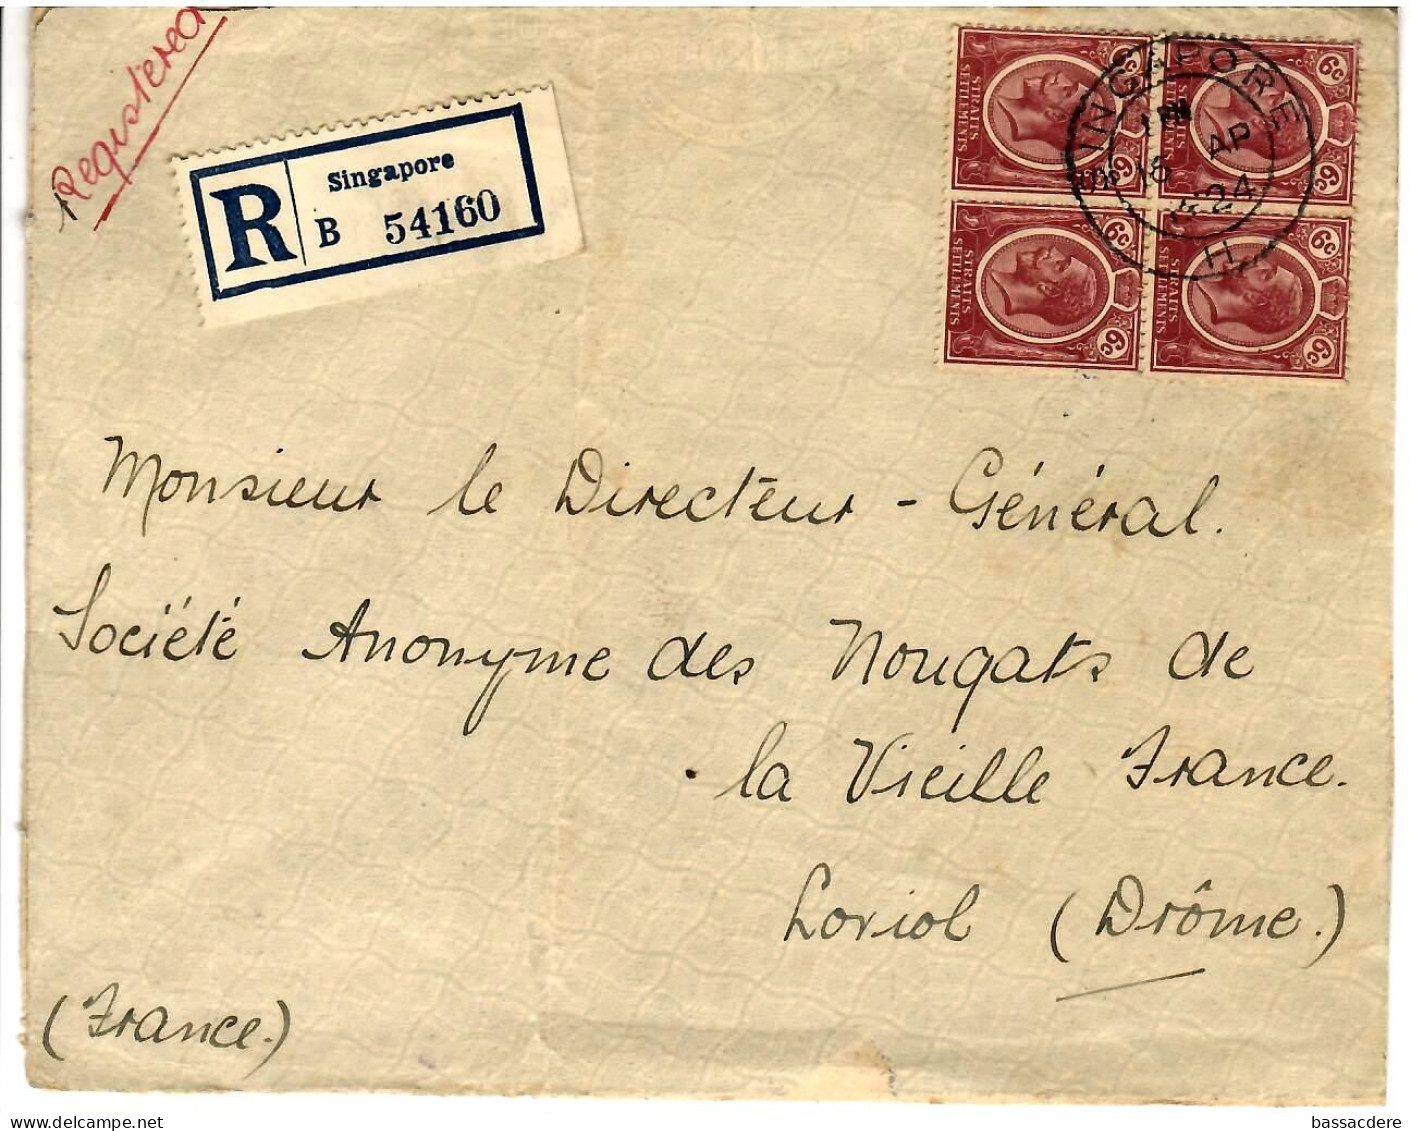 Registered
R
Singapore
B 54160
6c 6c STRAITS SETTLEMENTS
6c 6c STRAITS SETTLEMENTS
6c 6c STRAITS SETTLEMENTS
6c 6c STRAITS SETTLEMENTS
INGAPORE
1 PM
16 AP
24
H
Monsieur le Directeur - Général.
Société Anonyme des Nougats de
la Vieille France.
Loriol (Drôme.)
(France.)
bassacdere